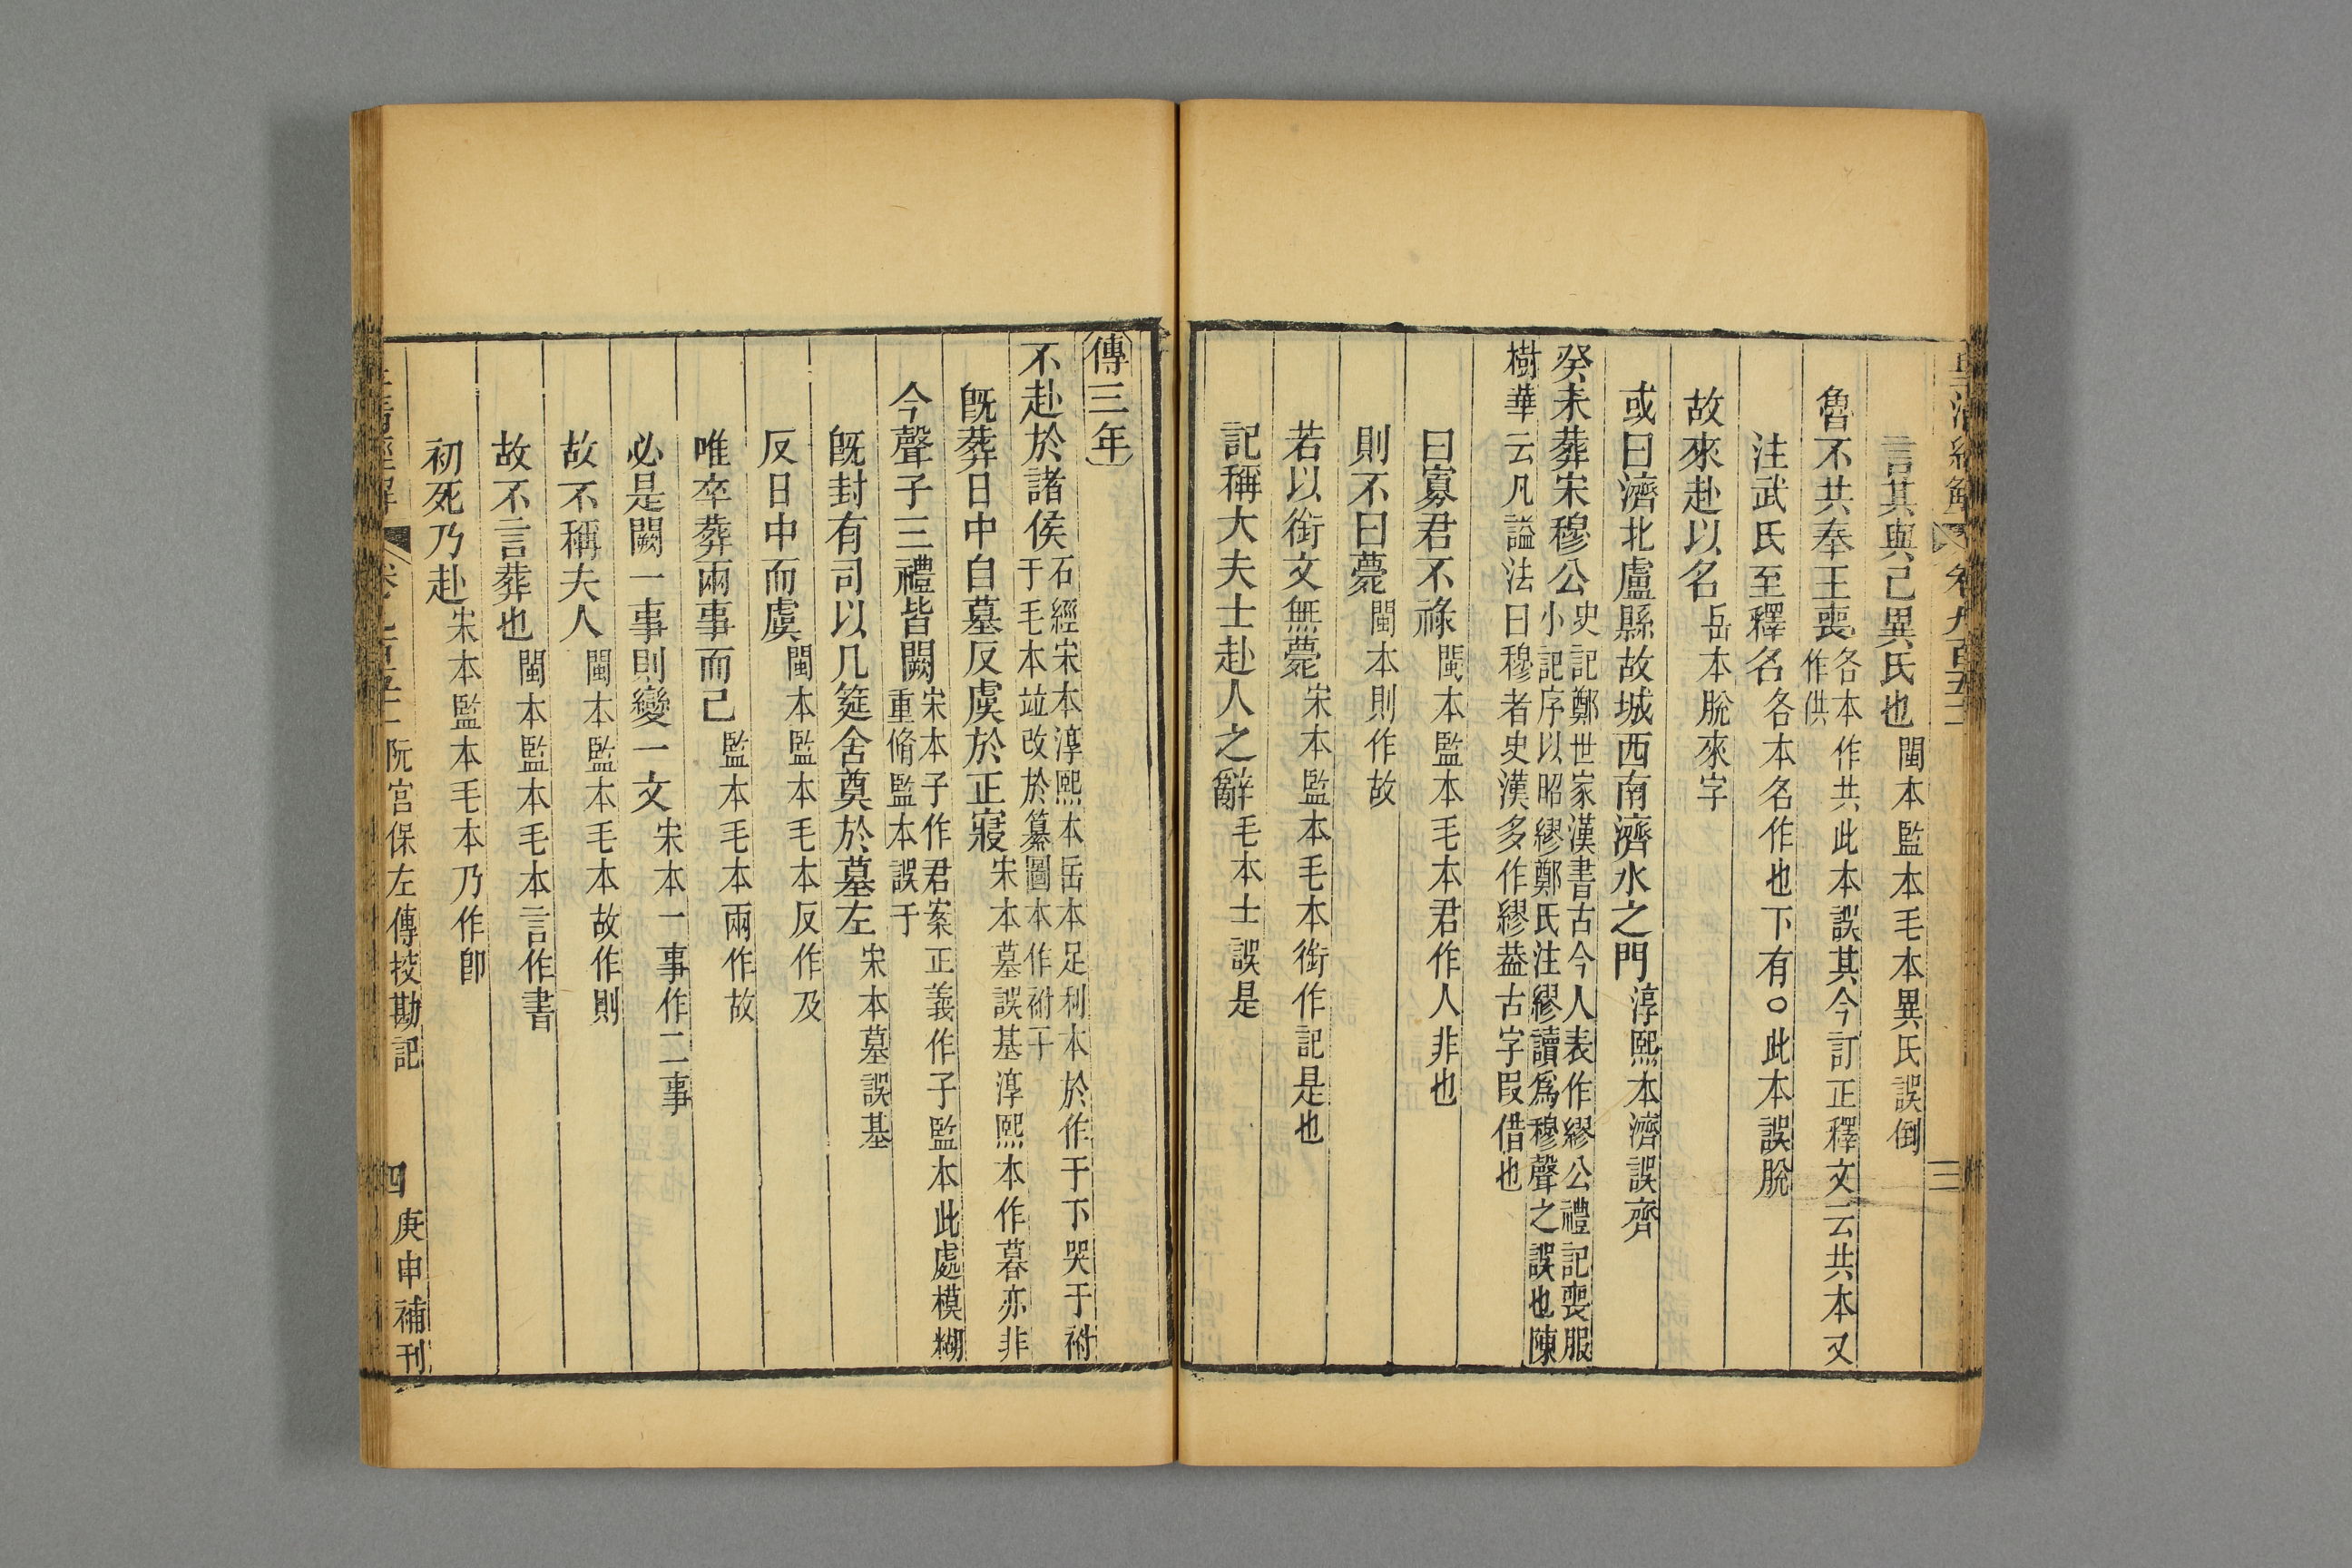 皇清經解
卷九百五十二
三
言其與己異氏也閩本監本毛本異氏誤倒
魯不共奉王喪各本作共此本誤其今訂正釋文云共本又
作供
注武氏至釋名各本名作也下有○此本誤脫
故來赴以名岳本脫來字
或曰濟北盧縣故城西南濟水之門淳熙本濟誤齊
癸未葬宋穆公史記鄭世家漢書古今人表作繆公禮記喪服
小記序以昭繆鄭氏注繆讀爲穆聲之誤也陳
樹華云凡謚法曰穆者史漢多作繆葢古字叚借也
曰寡君不祿閩本監本毛本君作人非也
則不曰薨閩本則作故
若以銜文無薨宋本監本毛本銜作記是也
記稱大夫士赴人之辭毛本士誤是
傳三年
不赴於諸侯石經宋本淳熙本岳本足利本於作于下哭于祔
于毛本竝改於纂圖本作祔于
旣葬日中自墓反虞於正寢宋本墓誤基淳熙本作暮亦非
今聲子三禮皆闕宋本子作君案正義作子監本此處模糊
重脩監本誤于
旣封有司以几筵舍奠於墓左宋本墓誤基
反日中而虞閩本監本毛本反作及
唯卒葬兩事而己監本毛本兩作故
必是闕一事則變一文宋本一事作二事
故不稱夫人閩本監本毛本故作則
故不言葬也閩本監本毛本言作書
初死乃赴宋本監本毛本乃作卽
皇清經解
阮宮保左傳挍勘記
四
庚申補刊